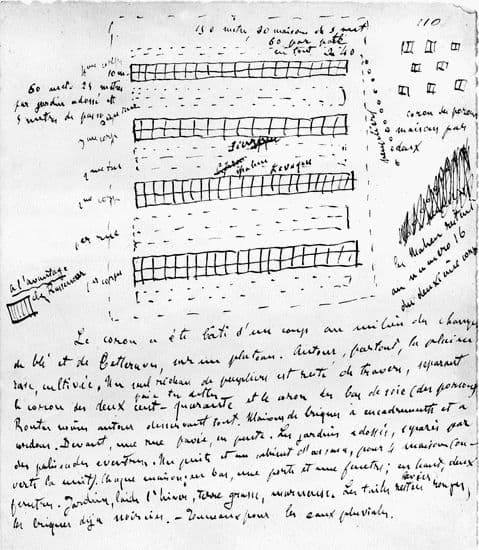 110
150 mètres 30 maisons de 5 mèt
60 par pâté
en tout 240
4me corps
10 m.
60 mèt. 25 mètres
par jardin adossé et
5 mètres de passage
3me rue
3me corps
2me rue
2me corps
1re rue
1er corps
Levaque
peupliers
coron du
maisons par
deux
les Maheu
au numéro 16
du deuxième corps
à l'avantage
chez Rasseneur
Le coron a été bâti d'un coup au milieu des champs
de blé et de betteraves, sur un plateau. Autour, partout, la plaine
rase, cultivée. Un seul rideau de peupliers est resté de travers, séparant
le coron des deux cent-quarante et le coron des bas de soie (des porions)
Routes noires autour desservant tout. Maisons de briques à encadrements et à
cordons. Devant, une rue pavée, en pente. Les jardins adossés, séparés par
des palissades ouvertes. Un puits et un cabinet d'aisances, pour 4 maisons (on
verse la nuit). Chaque maison; en bas, une porte et une fenêtre; en haut, deux
fenêtres. Jardins, laids l'hiver, terre grasse, Les tuiles restées rouges,
les briques déjà noircies. – pour les eaux pluviales.